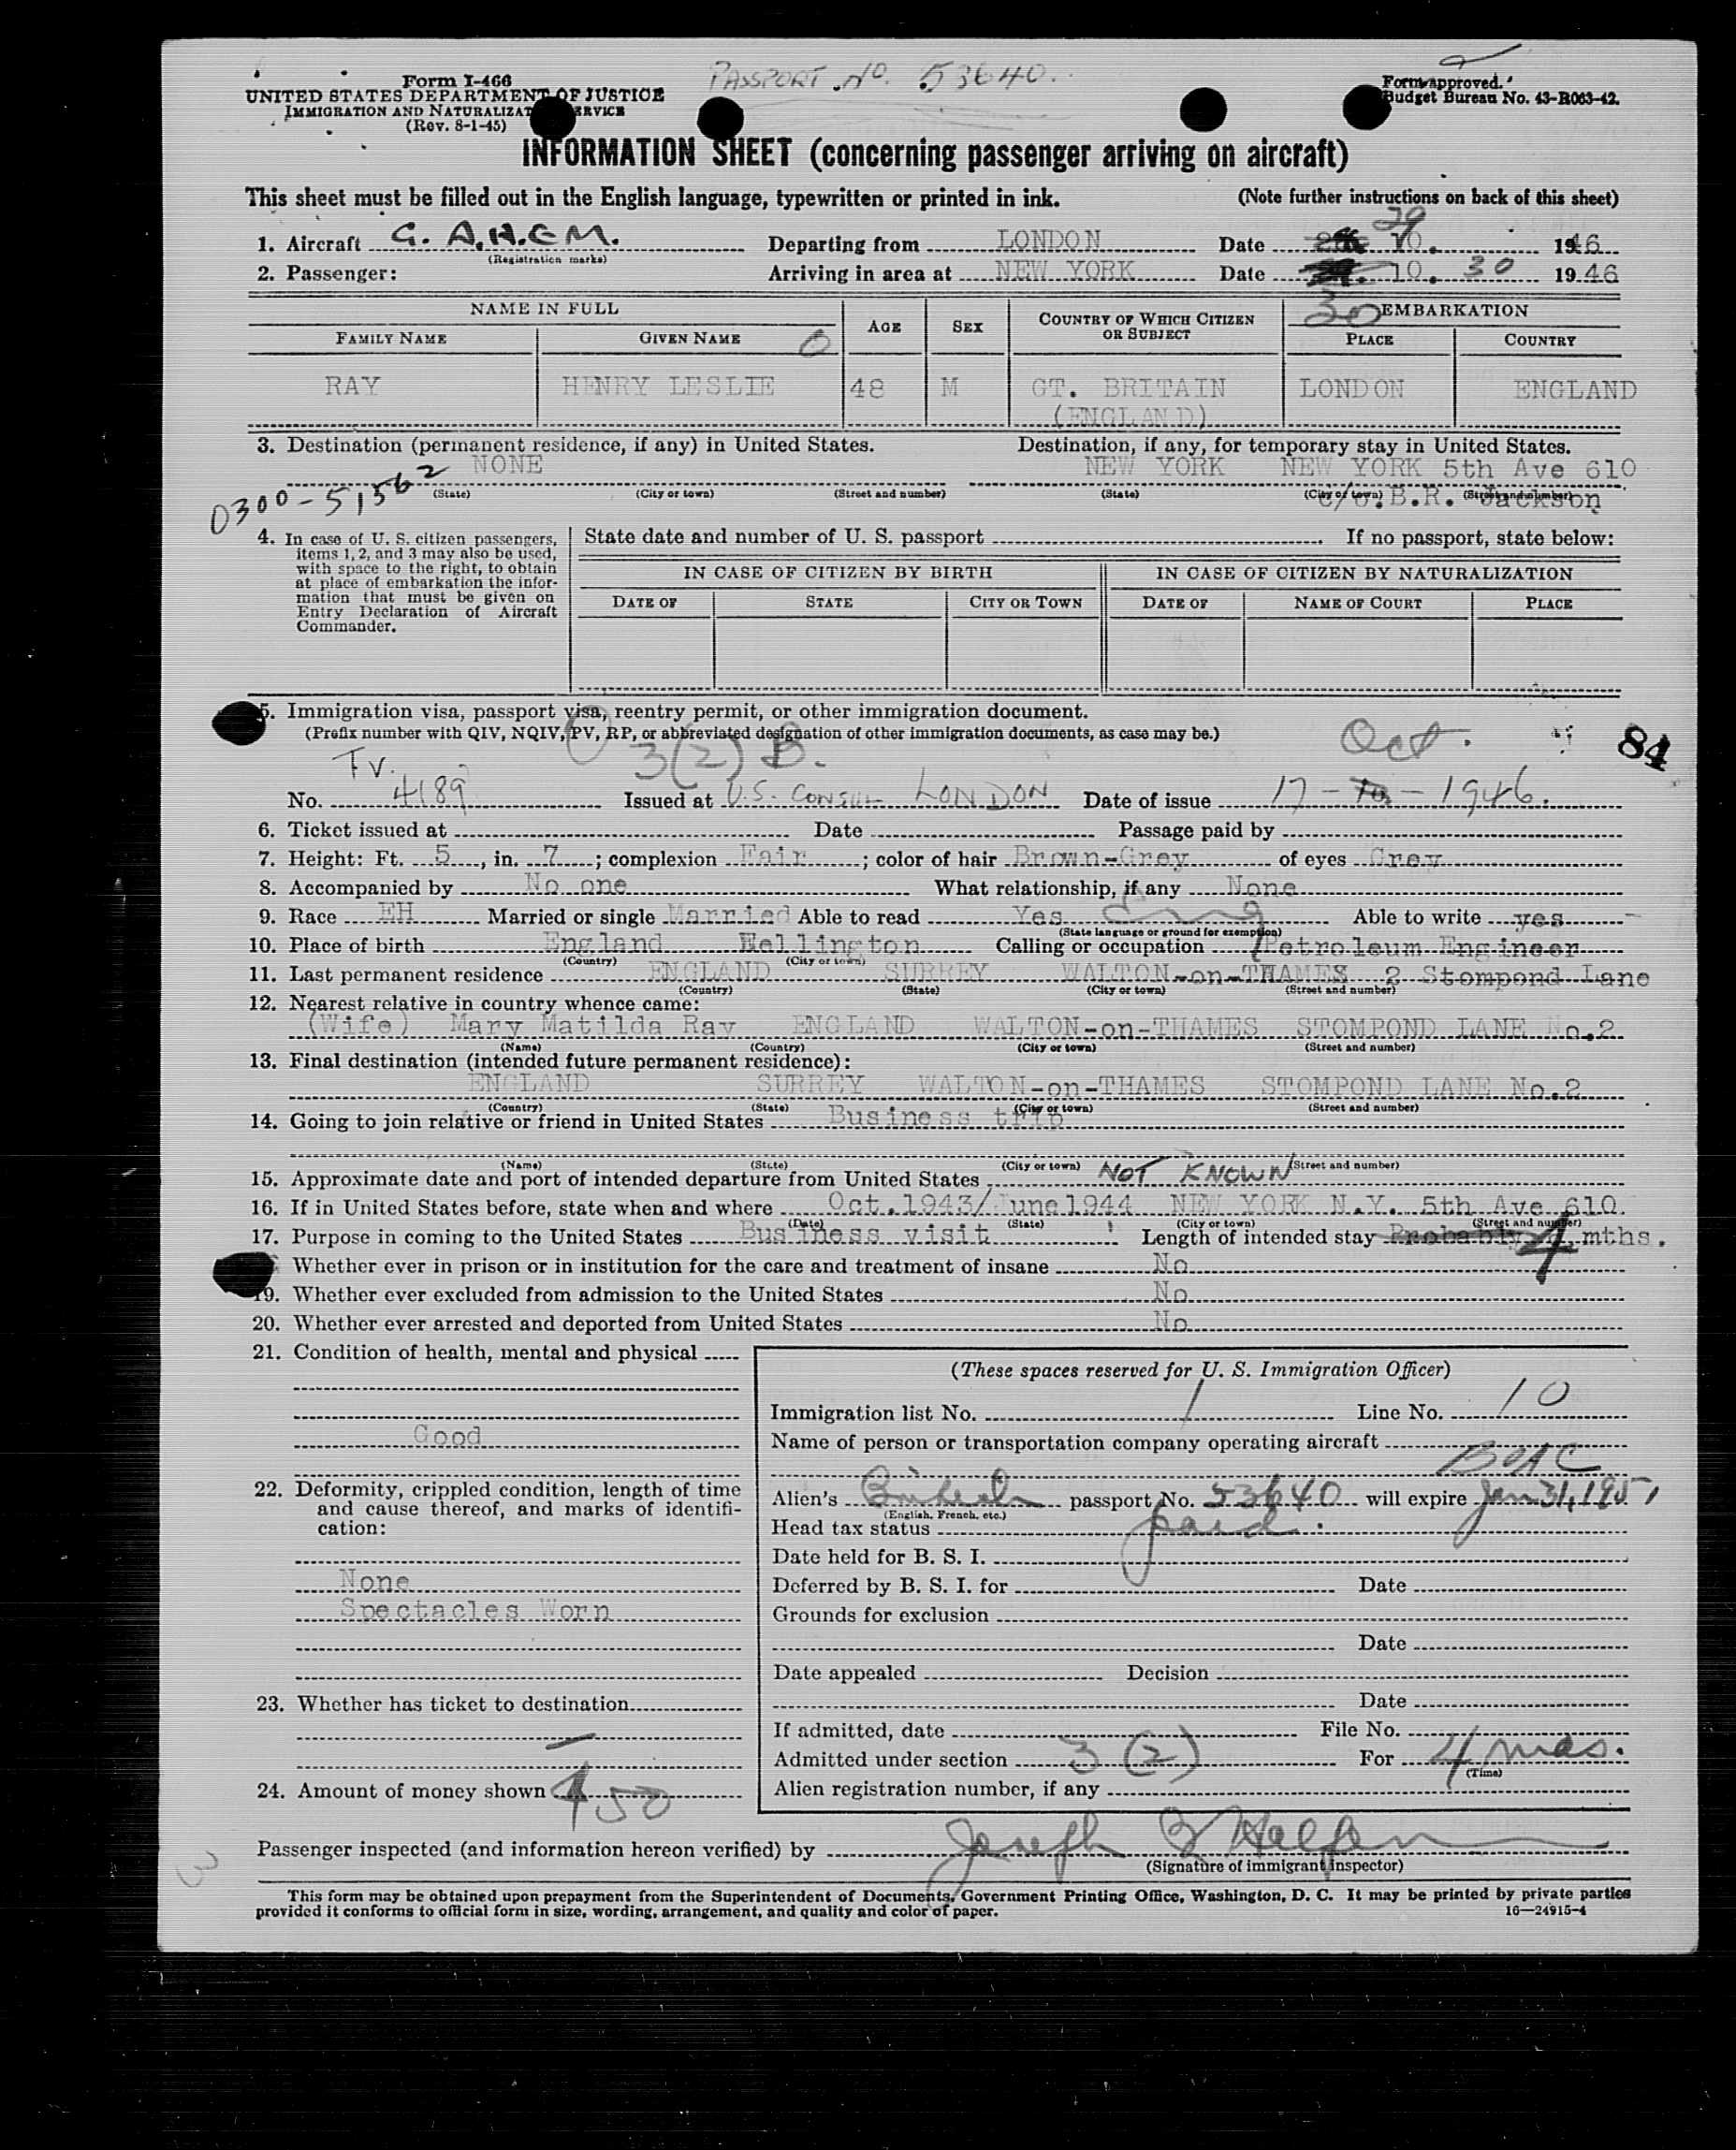 Form I-466
UNITED STATES DEPARTMENT OF JUSTICE
IMMIGRATION AND NATURALIZAT ERVICE
(Rev. 8-1-45)
PASSPORT. No. 53640.
Form approved.
Budget Bureau No. 43-R063-42.
INFORMATION SHEET (concerning passenger arriving on aircraft)
This sheet must be filled out in the English language, typewritten or printed in ink. (Note further instructions on back of this sheet)
29
1. Aircraft G. A.H.E M. Departing from LONDON Date 10. 1946
(Registration marks)
2. Passenger: Arriving in area at NEW YORK Date 10. 30 1946
30
NAME IN FULL AGE SEX COUNTRY OF WHICH CITIZEN OR SUBJECT EMBARKATION
FAMILY NAME GIVEN NAME PLACE COUNTRY
RAY HENRY LESLIE 48 M GT. BRITAIN LONDON ENGLAND
(ENGLAND)
3. Destination (permanent residence, if any) in United States. Destination, if any, for temporary stay in United States.
NONE NEW YORK NEW YORK 5th Ave 610
(State) (City or town) (Street and number) (State) (City or town) (Street and number)
c/o. B.R. Jackson
0300-51562
4. In case of U. S. citizen passengers, items 1, 2, and 3 may also be used, with space to the right, to obtain at place of embarkation the information that must be given on Entry Declaration of Aircraft Commander.
State date and number of U. S. passport If no passport, state below:
IN CASE OF CITIZEN BY BIRTH IN CASE OF CITIZEN BY NATURALIZATION
DATE OF STATE CITY OR TOWN DATE OF NAME OF COURT PLACE
5. Immigration visa, passport visa, reentry permit, or other immigration document.
(Prefix number with QIV, NQIV, PV, RP, or abbreviated designation of other immigration documents, as case may be.)
Oct. 84
TV. 3(2) B.
No. 4189 Issued at U.S. CONSUL LONDON Date of issue 17 - 10 - 1946.
6. Ticket issued at Date Passage paid by
7. Height: Ft. 5, in. 7; complexion Fair; color of hair Brown-Grey of eyes Grey
8. Accompanied by No one What relationship, if any None
9. Race EH Married or single Married Able to read Yes Eng Able to write yes
(State language or ground for exemption)
10. Place of birth England Wellington Calling or occupation Petroleum Engineer
(Country) (City or town)
11. Last permanent residence ENGLAND SURREY WALTON-on-THAMES 2 Stompond Lane
(Country) (State) (City or town) (Street and number)
12. Nearest relative in country whence came:
(Wife) Mary Matilda Ray ENGLAND WALTON-on-THAMES STOMPOND LANE No.2
(Name) (Country) (City or town) (Street and number)
13. Final destination (intended future permanent residence):
ENGLAND SURREY WALTON-on-THAMES STOMPOND LANE No.2
(Country) (State) (City or town) (Street and number)
14. Going to join relative or friend in United States Business trip
(Name) (State) (City or town) (Street and number)
15. Approximate date and port of intended departure from United States NOT KNOWN
16. If in United States before, state when and where Oct.1943/June1944 NEW YORK N.Y. 5th Ave 610
(Date) (State) (City or town) (Street and number)
17. Purpose in coming to the United States Business visit Length of intended stay Probably 4 mths.
Whether ever in prison or in institution for the care and treatment of insane No
19. Whether ever excluded from admission to the United States No
20. Whether ever arrested and deported from United States No
21. Condition of health, mental and physical
Good
22. Deformity, crippled condition, length of time and cause thereof, and marks of identification:
None
Spectacles Worn
23. Whether has ticket to destination
24. Amount of money shown 450
(These spaces reserved for U. S. Immigration Officer)
Immigration list No. 1 Line No. 10
Name of person or transportation company operating aircraft
BOAC
Alien's British passport No. 53640 will expire Jan 31, 1951
(English, French, etc.)
Head tax status paid.
Date held for B. S. I.
Deferred by B. S. I. for Date
Grounds for exclusion
Date
Date appealed Decision
Date
If admitted, date File No.
Admitted under section 3 (2) For 4 mos.
(Time)
Alien registration number, if any
Passenger inspected (and information hereon verified) by Joseph Halpern
(Signature of immigrant inspector)
This form may be obtained upon prepayment from the Superintendent of Documents, Government Printing Office, Washington, D. C. It may be printed by private parties
provided it conforms to official form in size, wording, arrangement, and quality and color of paper. 16—24915-4